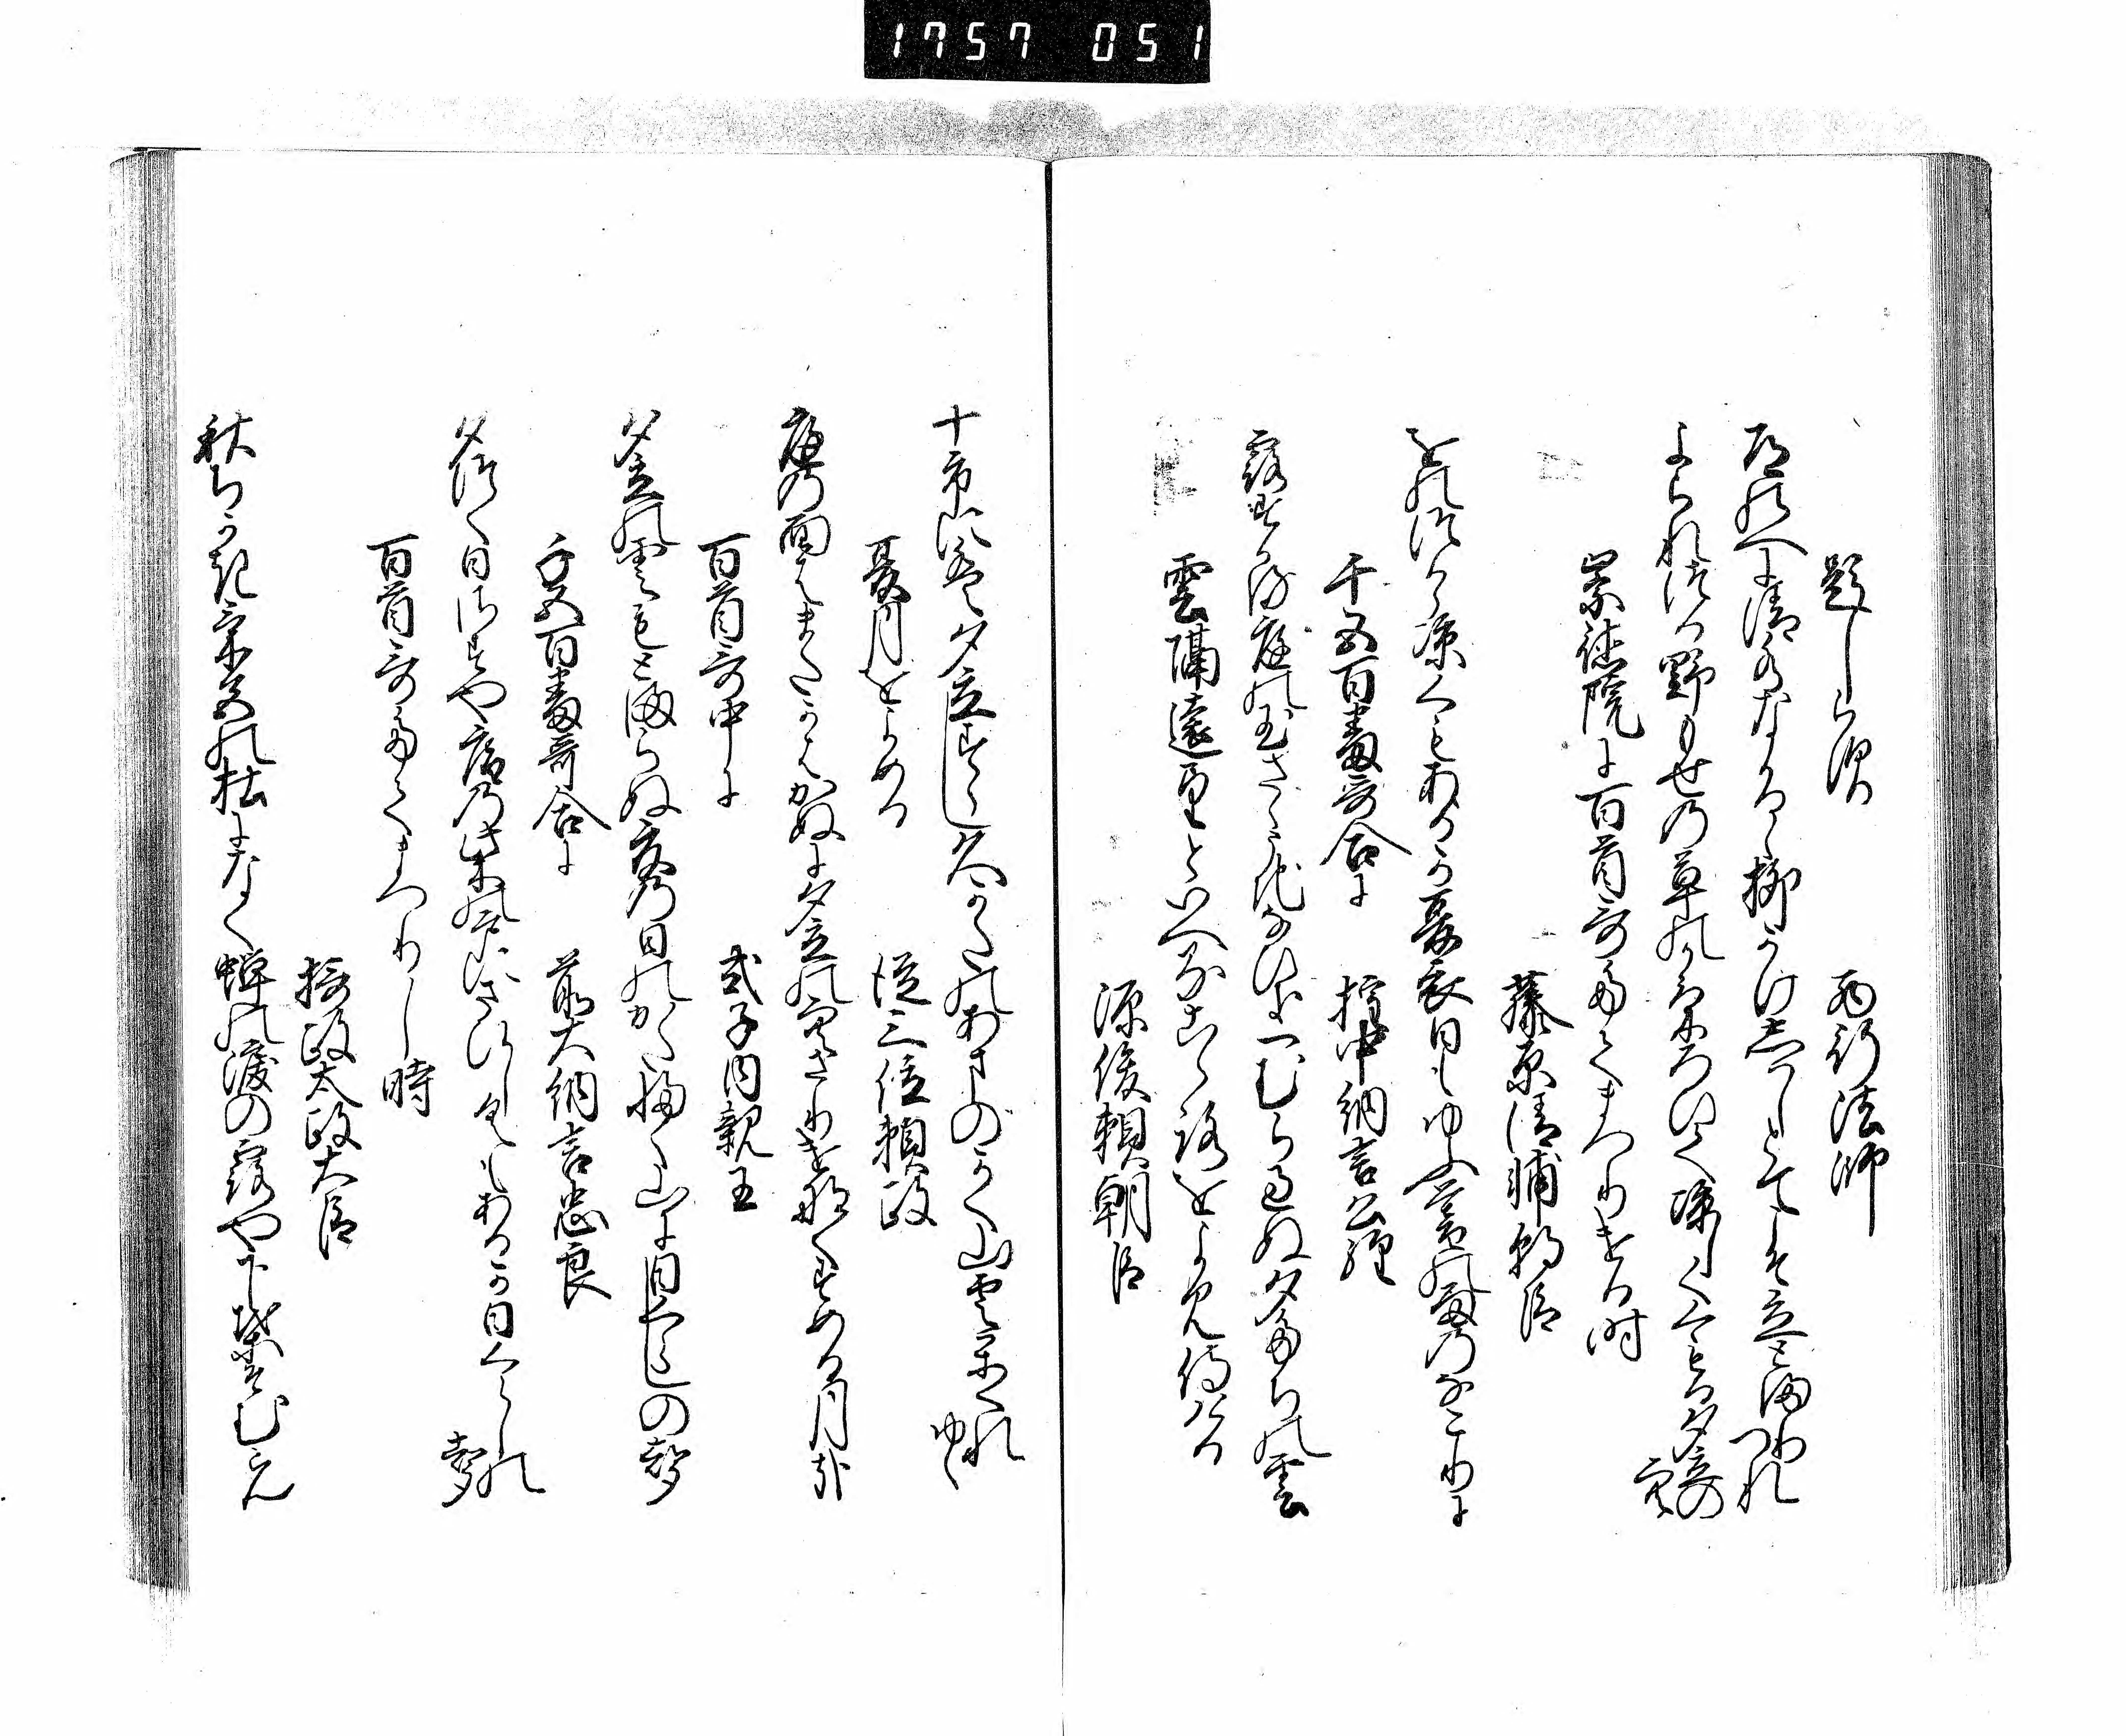 1757 051
題しらす 西行法師
道のへに清水なかるゝ柳かけしはしとてこそ立とまりつれ
よられつる野もせの草のかけろひて涼しくくもる夕立の空
崇徳院に百首哥たてまつりける時
藤原清輔朝臣
をのつから涼しくもあるか夏衣日もゆふ暮の雨のなこりに
千五百番哥合に 権中納言公経
露すかる庭の玉さゝうちなひき一むら過ぬ夕たちの雲
雲隔遠望といへる心をよみ侍ける
源俊頼朝臣
十市には夕立すらし久かたの天のかく山雲かくれゆく
夏月をよめる 従三位頼政
庭の面はまたかはかぬに夕立の空さりけなくすめる月哉
百首哥中に 式子内親王
夕立の雲もとまらぬ夏の日のかたふく山に日くらしの声
千五百番哥合に 前大納言忠良
夕つく日さすや庵の柴の戸にさひしくもあるか日くらしの声
百首哥たてまつりし時
摂政太政大臣
秋ちかきけしきの森になく蝉の涙の露や下葉そむらん